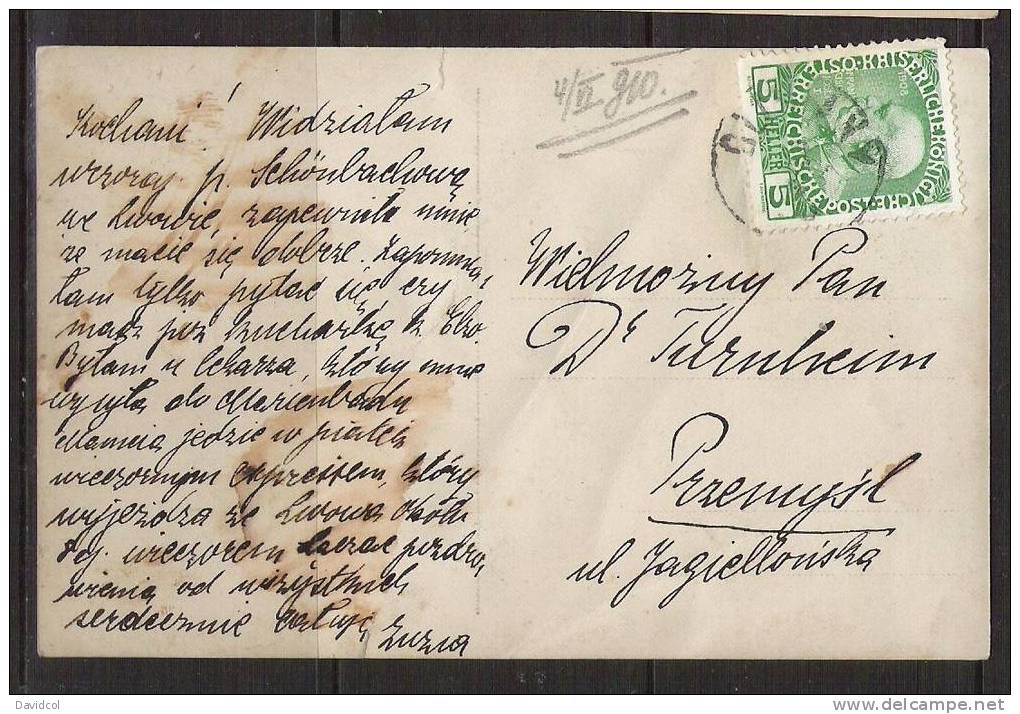 4/VI 910.
Kochani! Widziałam
wczoraj p. Schönbachową
we Lwowie, zapewniła mnie
że macie się dobrze. Zapomnia
łam tylko pytać się, czy
masz już kucharkę
Byłam u lekarza, który mnie
wysyła do Marienbadu
Mamcia jedzie w piątek
wieczornym expressem, który
wyjeżdża ze Lwowa około
wieczorem pozdro
wienia od wszystkich
serdecznie całuję Zuzia
5 HELLER 5
KAISERLICHE KÖNIGLICHE
ÖSTERREICHISCHE POST
1908
Wielmożny Pan
Dr Turnheim
Przemyśl
ul. Jagiellońska
Davidcol
www.delcampe.net